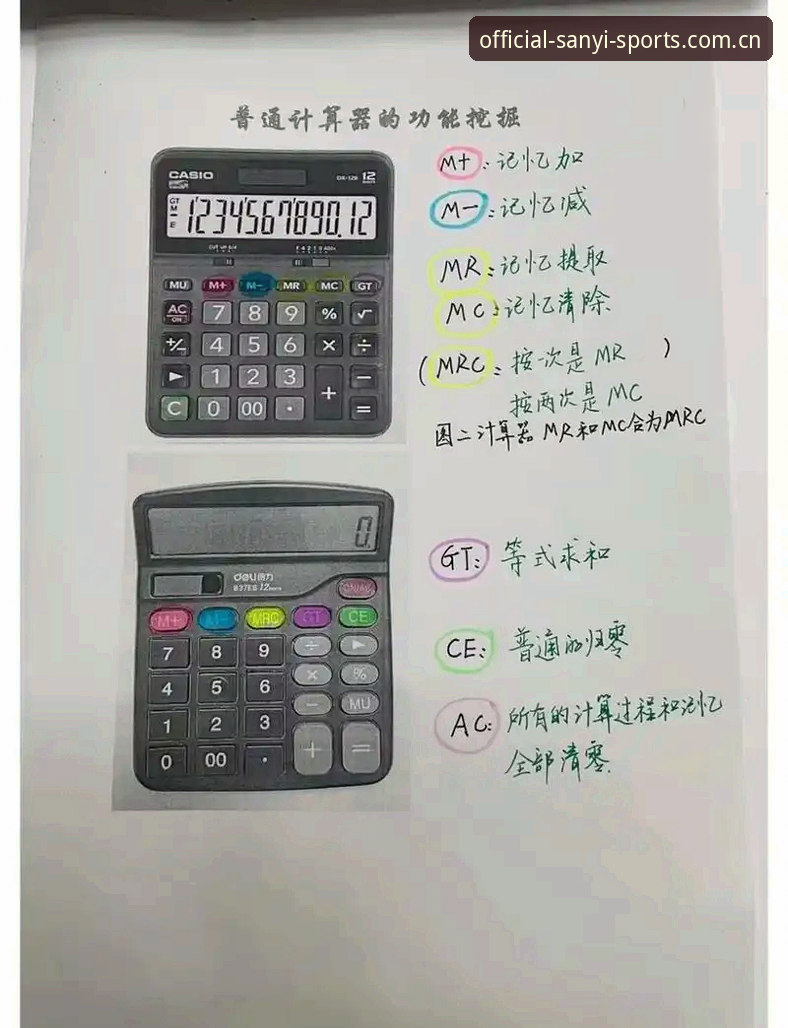 official-sanyi-sports.com.cn
普通计算器的功能挖掘
CASIO
12
GT
M
E
1234567890.12
MU M+ M- MR MC GT
AC 7 8 9 % √
ON
+/- 4 5 6 × ÷
► 1 2 3 + −
C 0 00 · =
M+: 记忆加
M-: 记忆减
MR: 记忆提取
MC: 记忆清除
(MRC: 按一次是MR )
按两次是MC
图二计算器 MR和MC合为MRC
0.
deli得力
837ES 12
M+ M- MRC GT CE
7 8 9 ÷ ►
4 5 6 × %
1 2 3 − MU
0 00 · + =
GT: 等式求和
CE: 普通的归零
AC: 所有的计算过程和记忆
全部清零.